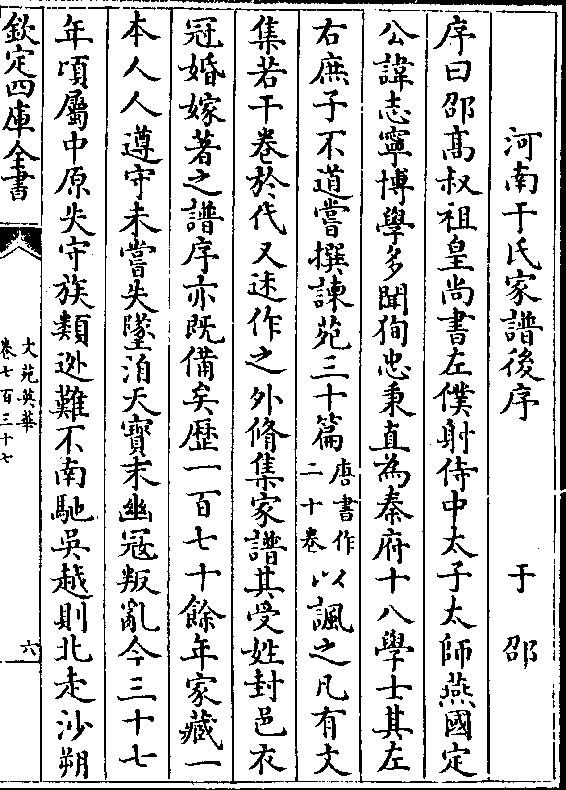 河南于氏家譜後序
于邵
序曰邵高叔祖皇尚書左僕射侍中太子太師燕國定
公諱志寧博學多聞狥忠秉直為秦府十八學士其左
右庶子不道嘗撰諫苑三十篇唐書作二十卷以諷之凡有文
集若干卷於代又述作之外脩集家譜其受姓封邑衣
冠婚嫁著之譜序亦既備矣歴一百七十餘年家藏一
本人人遵守未嘗失墜洎天寶末幽寇叛亂今三十七
年頃屬中原失守族類迯難不南馳吳越則北走沙朔
欽定四庫全書
文苑英華
卷七百三十七
六